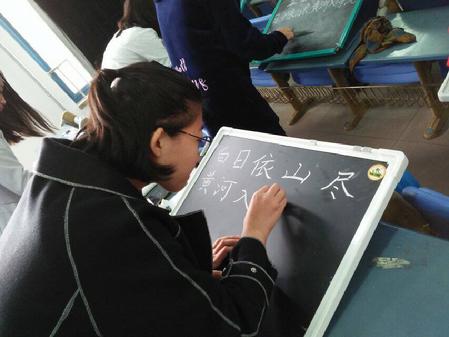 白日依山尽
黄河入